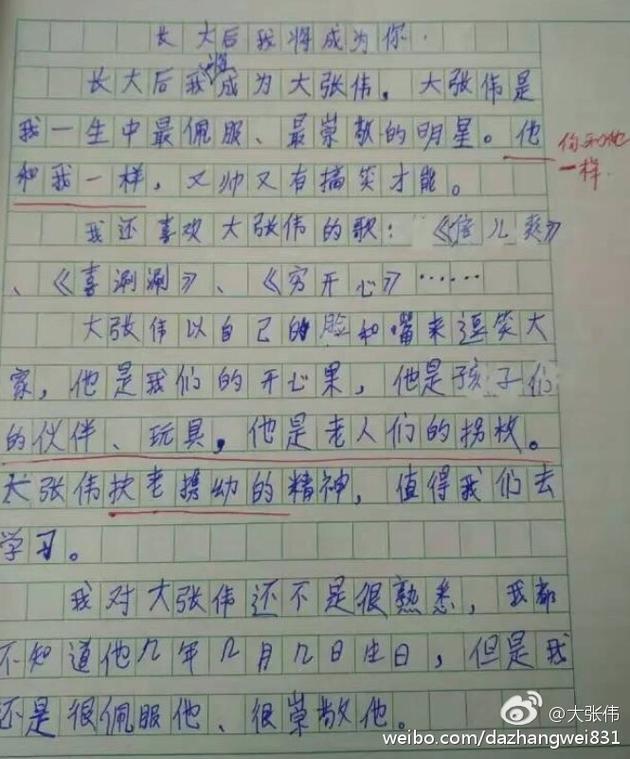 长大后我将成为你.
长大后我将成为大张伟，大张伟是
我一生中最佩服、最崇敬的明星。他
和我一样，又帅又有搞笑才能。
你和他
一样.
我还喜欢大张伟的歌：《倍儿爽》
、《喜涮涮》、《穷开心》……
大张伟以自己的脸和嘴来逗笑大
家，他是我们的开心果，他是孩子们
的伙伴、玩具，他是老人们的拐杖。
大张伟扶老携幼的精神，值得我们去
学习。
我对大张伟还不是很熟悉，我都
不知道他几年几月几日生日，但是我
还是很佩服他、很崇敬他。
@大张伟
weibo.com/dazhangwei831